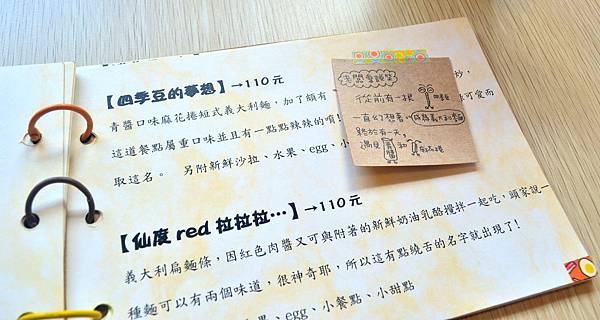 【四季豆的夢想】→110元
青醬口味麻花捲短式義大利麵,加了頗有
炒,
這道餐點屬重口味並且有一點點辣辣的唷!
可愛而
取這名。 另附新鮮沙拉、水果、egg、小
老闆愛說笑
從前有一根
一直幻想著
終於有一天,
遇見 和
【仙度red拉拉拉…】→110元
義大利扁麵條,因紅色肉醬又可與附著的新鮮奶油乳酪攪拌一起吃,頭家說一
種麵可以有兩個味道,很神奇耶,所以這有點繞舌的名字就出現了!
果、egg、小餐點、小甜點